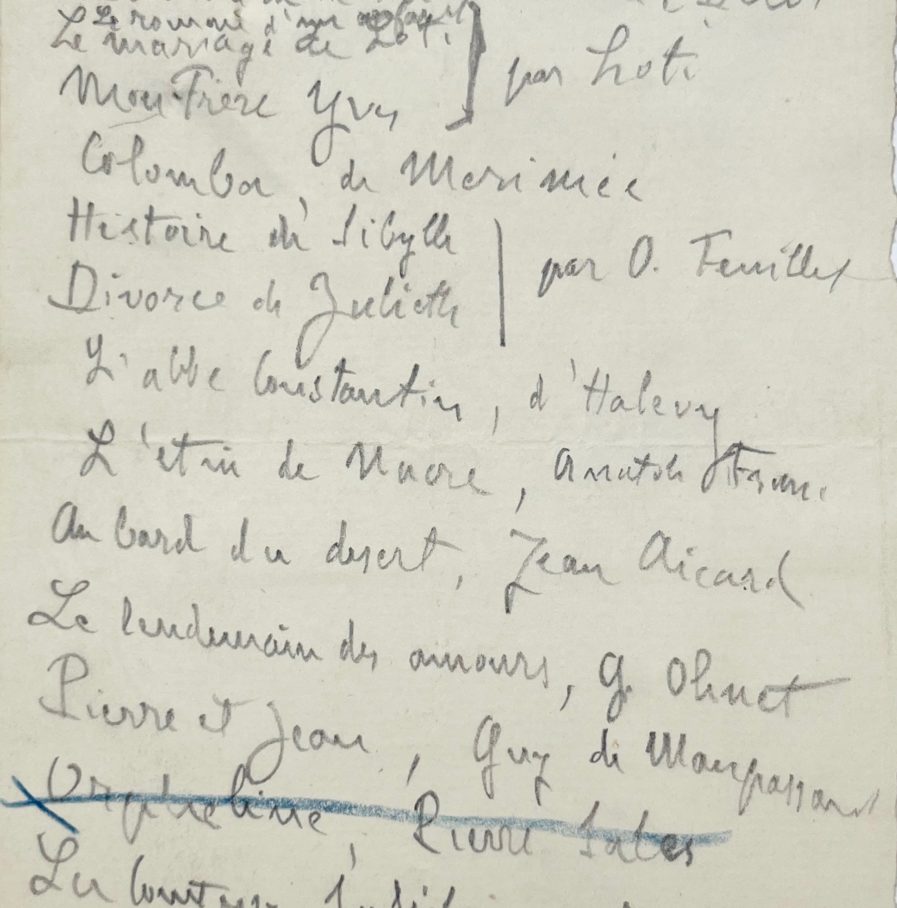 Le roman d'un enfant
Le mariage de Loti
Mon Frère Yves
par Loti
Colomba, de Merimée
Histoire de Sibylle
Divorce de Juliette
par O. Feuillet
L'abbe Constantin, d'Halevy
L'etui de Nacre, Anatole France
Au bord du desert, Jean Aicard
Le lendemain des amours, G. Ohnet
Pierre et Jean, Guy de Maupassant
Orpheline, Pierre Sales
La Comtesse